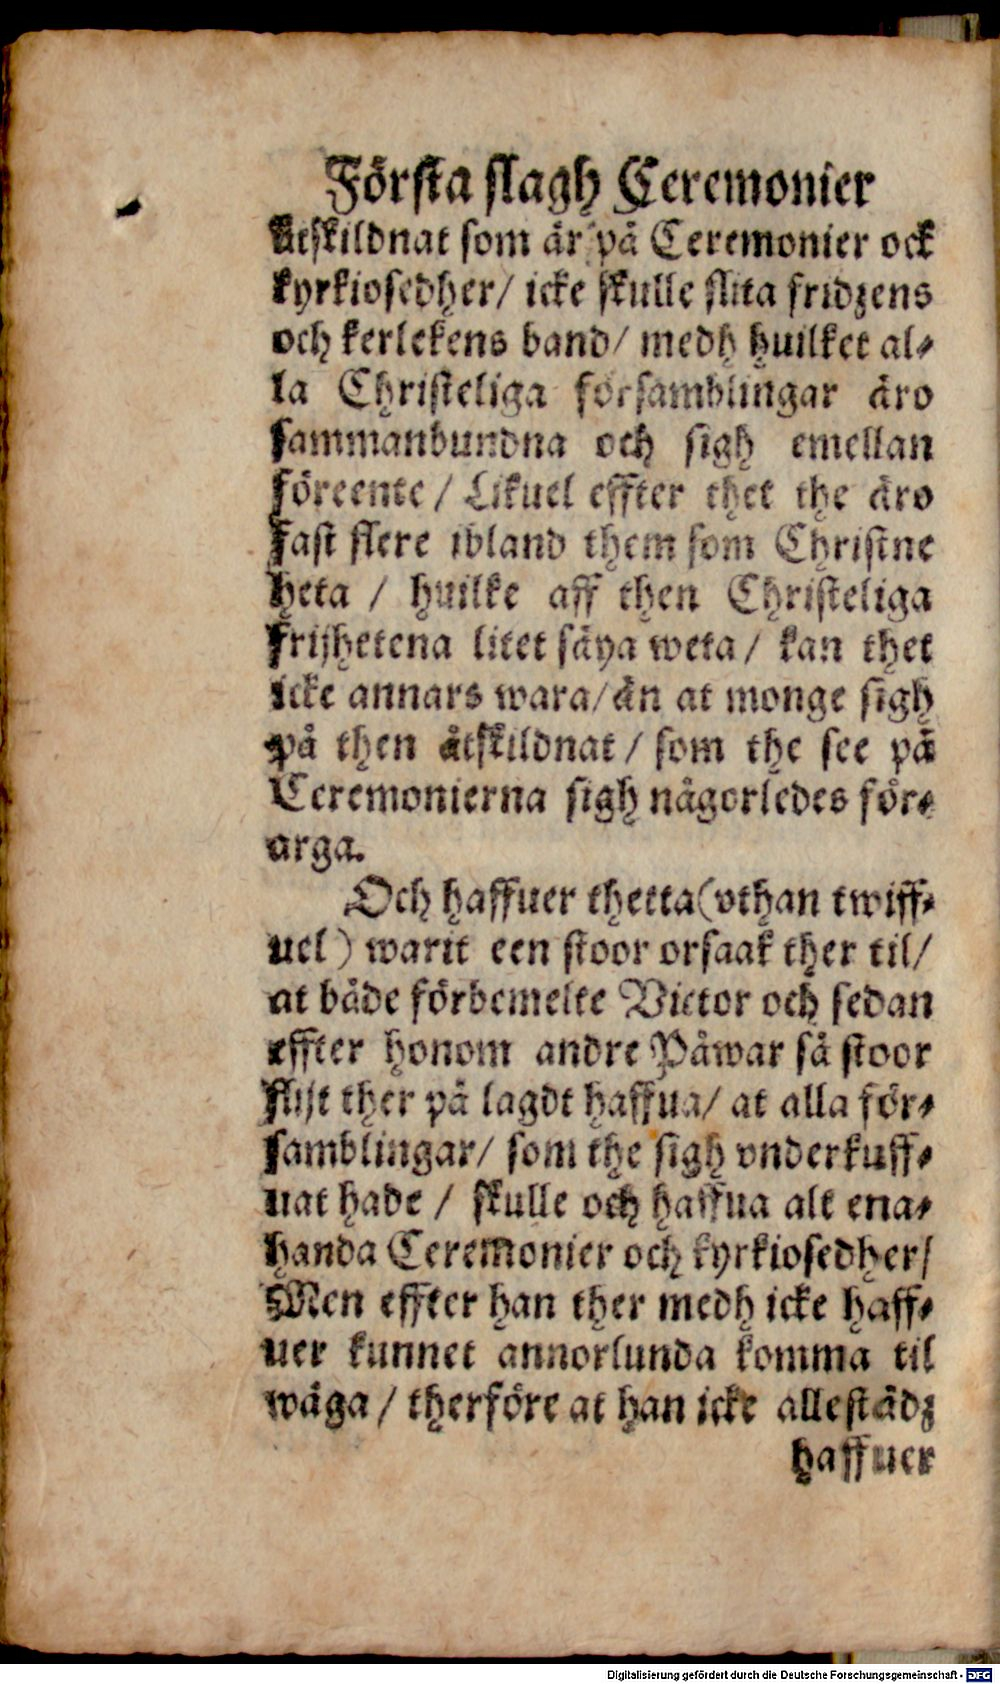 Första slagh Ceremonier
åtskildnat som är på Ceremonier ock
kyrkiosedher/ icke skulle slita fridzens
och kerlekens band/ medh huilket al⸗
la Christeliga församblingar äro
sammanbundna och sigh emellan
föreente / Likuel effter thet the äro
fast flere ibland them som Christne
heta / huilke aff then Christeliga
frijhetena litet säya weta / kan thet
icke annars wara/ än at monge sigh
på then åtskildnat / som the see på
Ceremonierna sigh någorledes för⸗
arga.
Och haffuer thetta (vthan twiff⸗
uel) warit een stoor orsaak ther til/
at både förbemelte Victor och sedan
effter honom andre Påwar så stoor
flijt ther på lagdt haffua/ at alla för⸗
samblingar/ som the sigh vnderkuff⸗
uat hade / skulle och haffua alt ena⸗
handa Ceremonier och kyrkiosedher/
Men effter han ther medh icke haff⸗
uer kunnet annorlunda komma til
wäga / therföre at han icke allestädz
haffuer
Digitalisierung gefördert durch die Deutsche Forschungsgemeinschaft - DFG